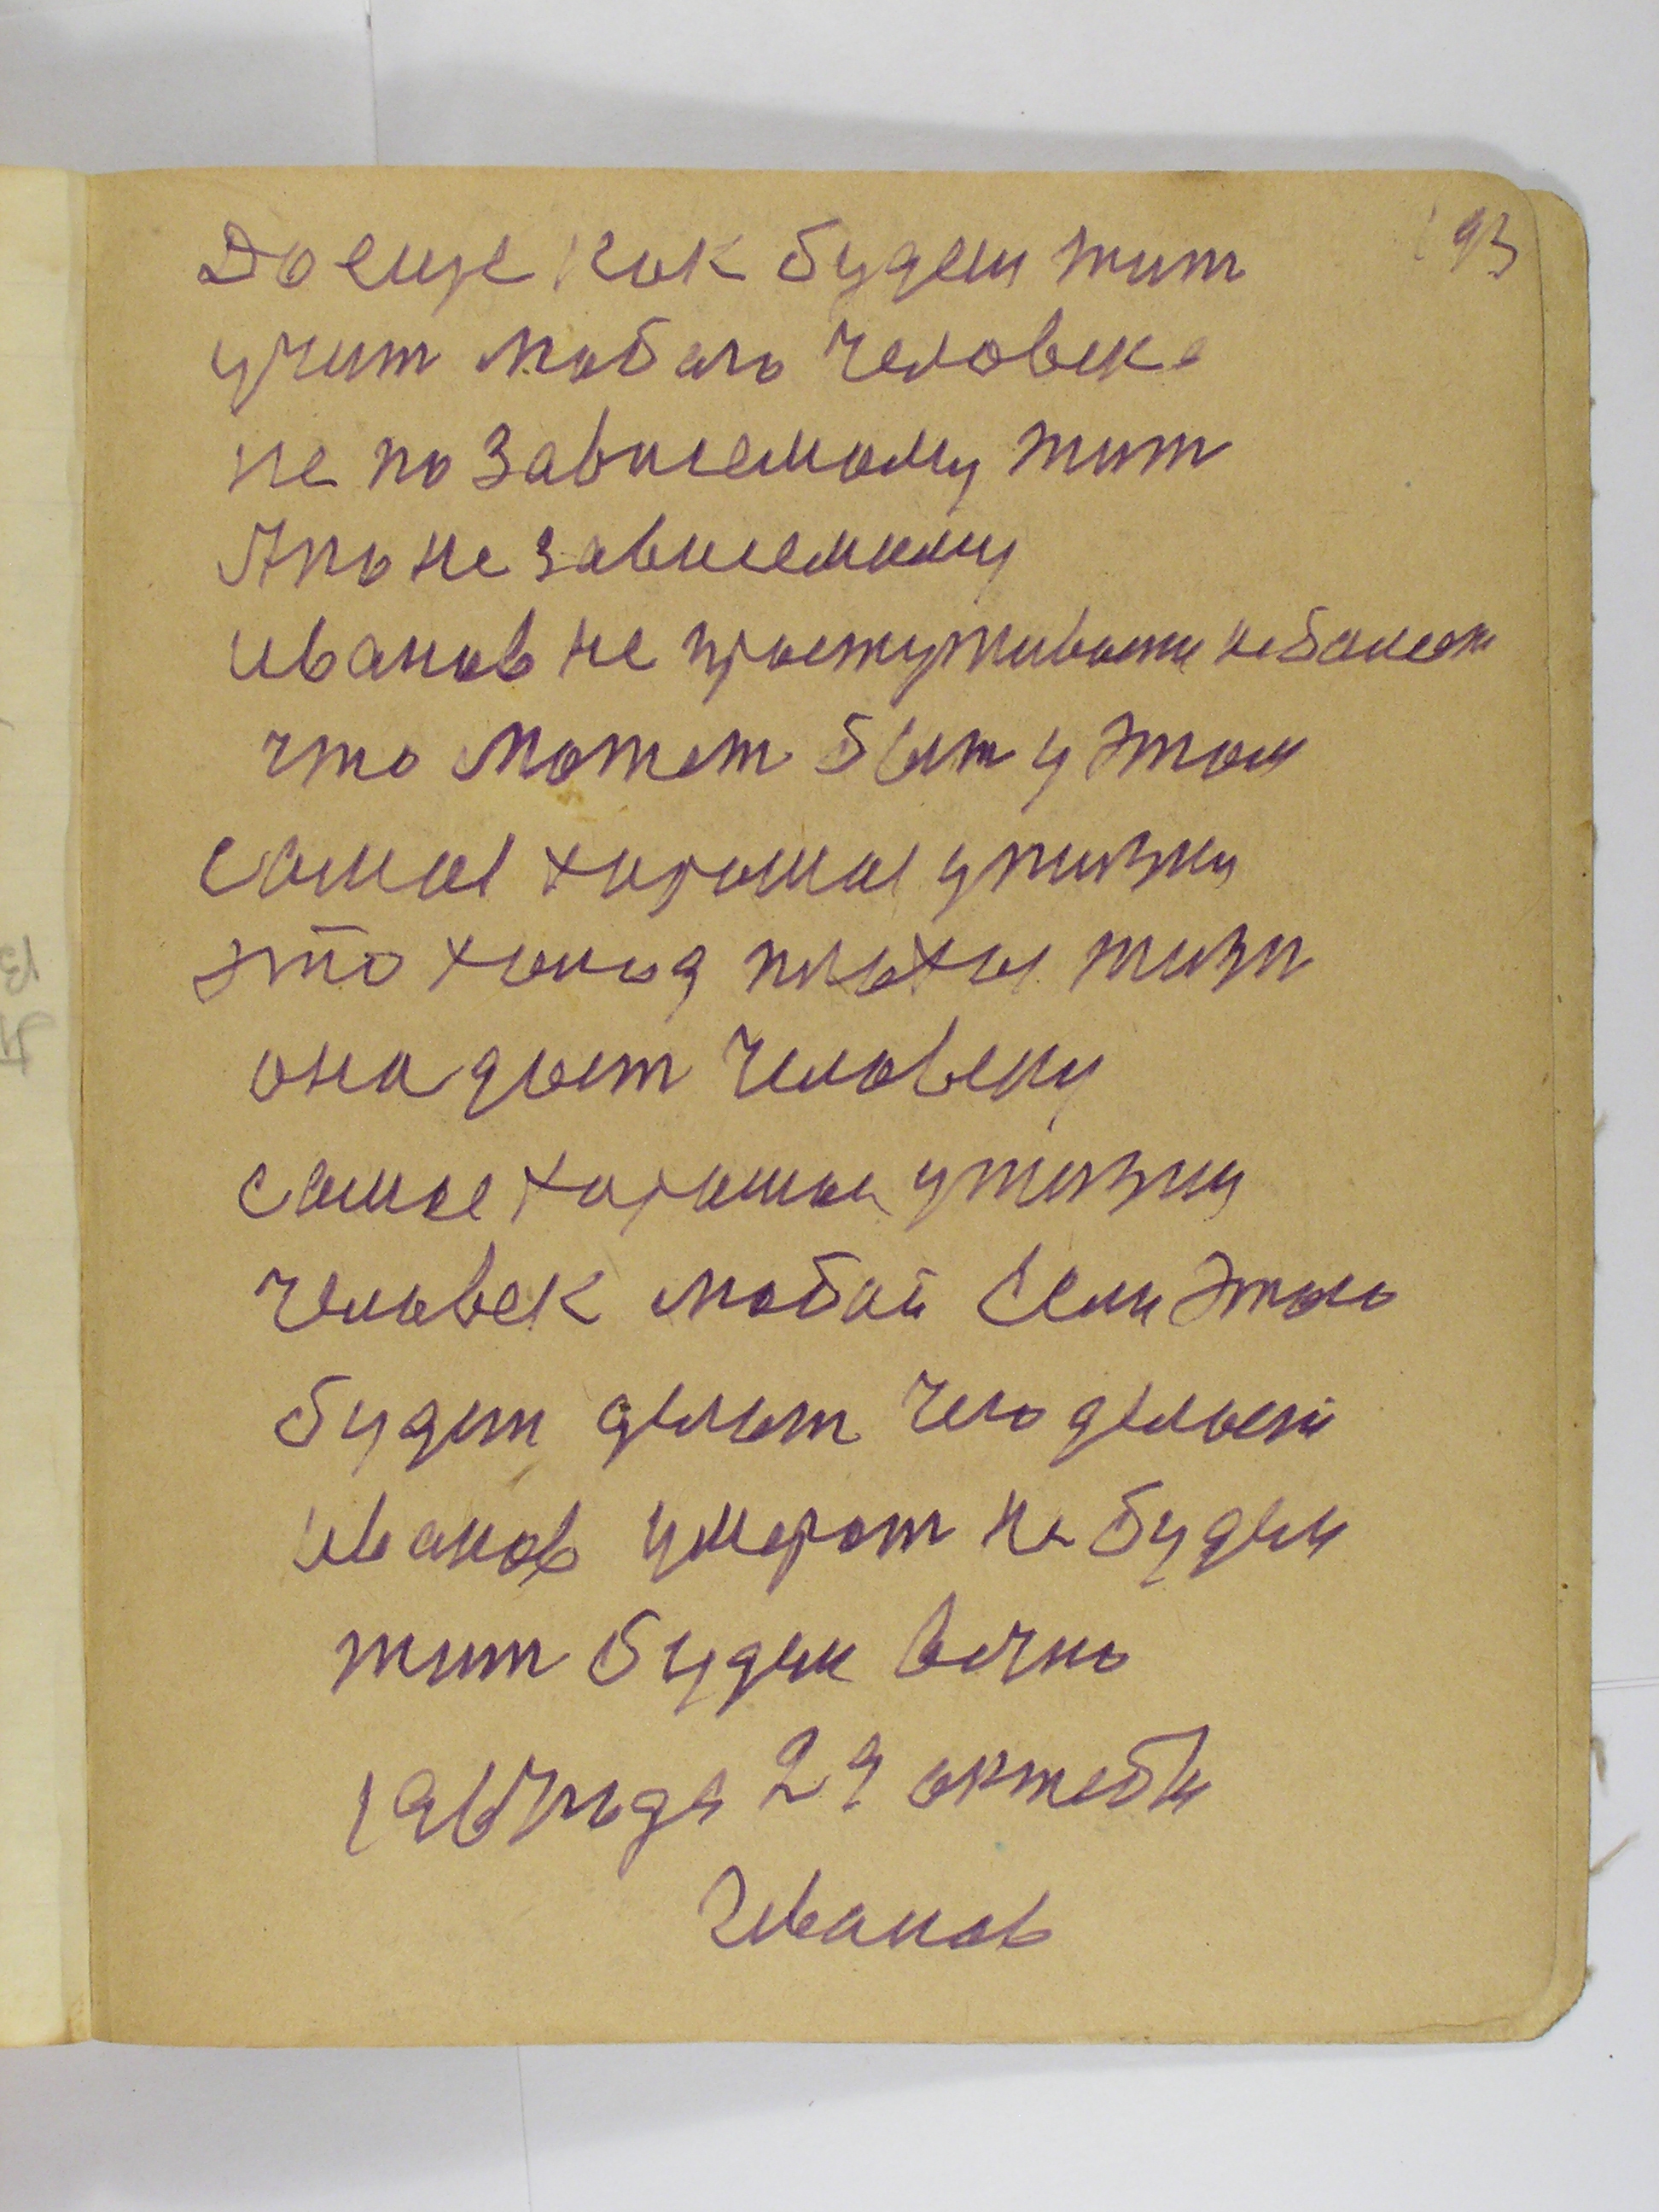 193
До еще как будем жит
учит любого человека
не по зависемому жит
А по не зависемому
иванов не простуживаеми не болеет
что может быт у этом
самое хорошое у жизни
это холод плохое жизн
она дает человеку
самое хорошое у жизни
человек любой Если этого
будет делат чего делает
иванов умерат не будем
жит будем вечно
1967 года 29 октебя
Иванов